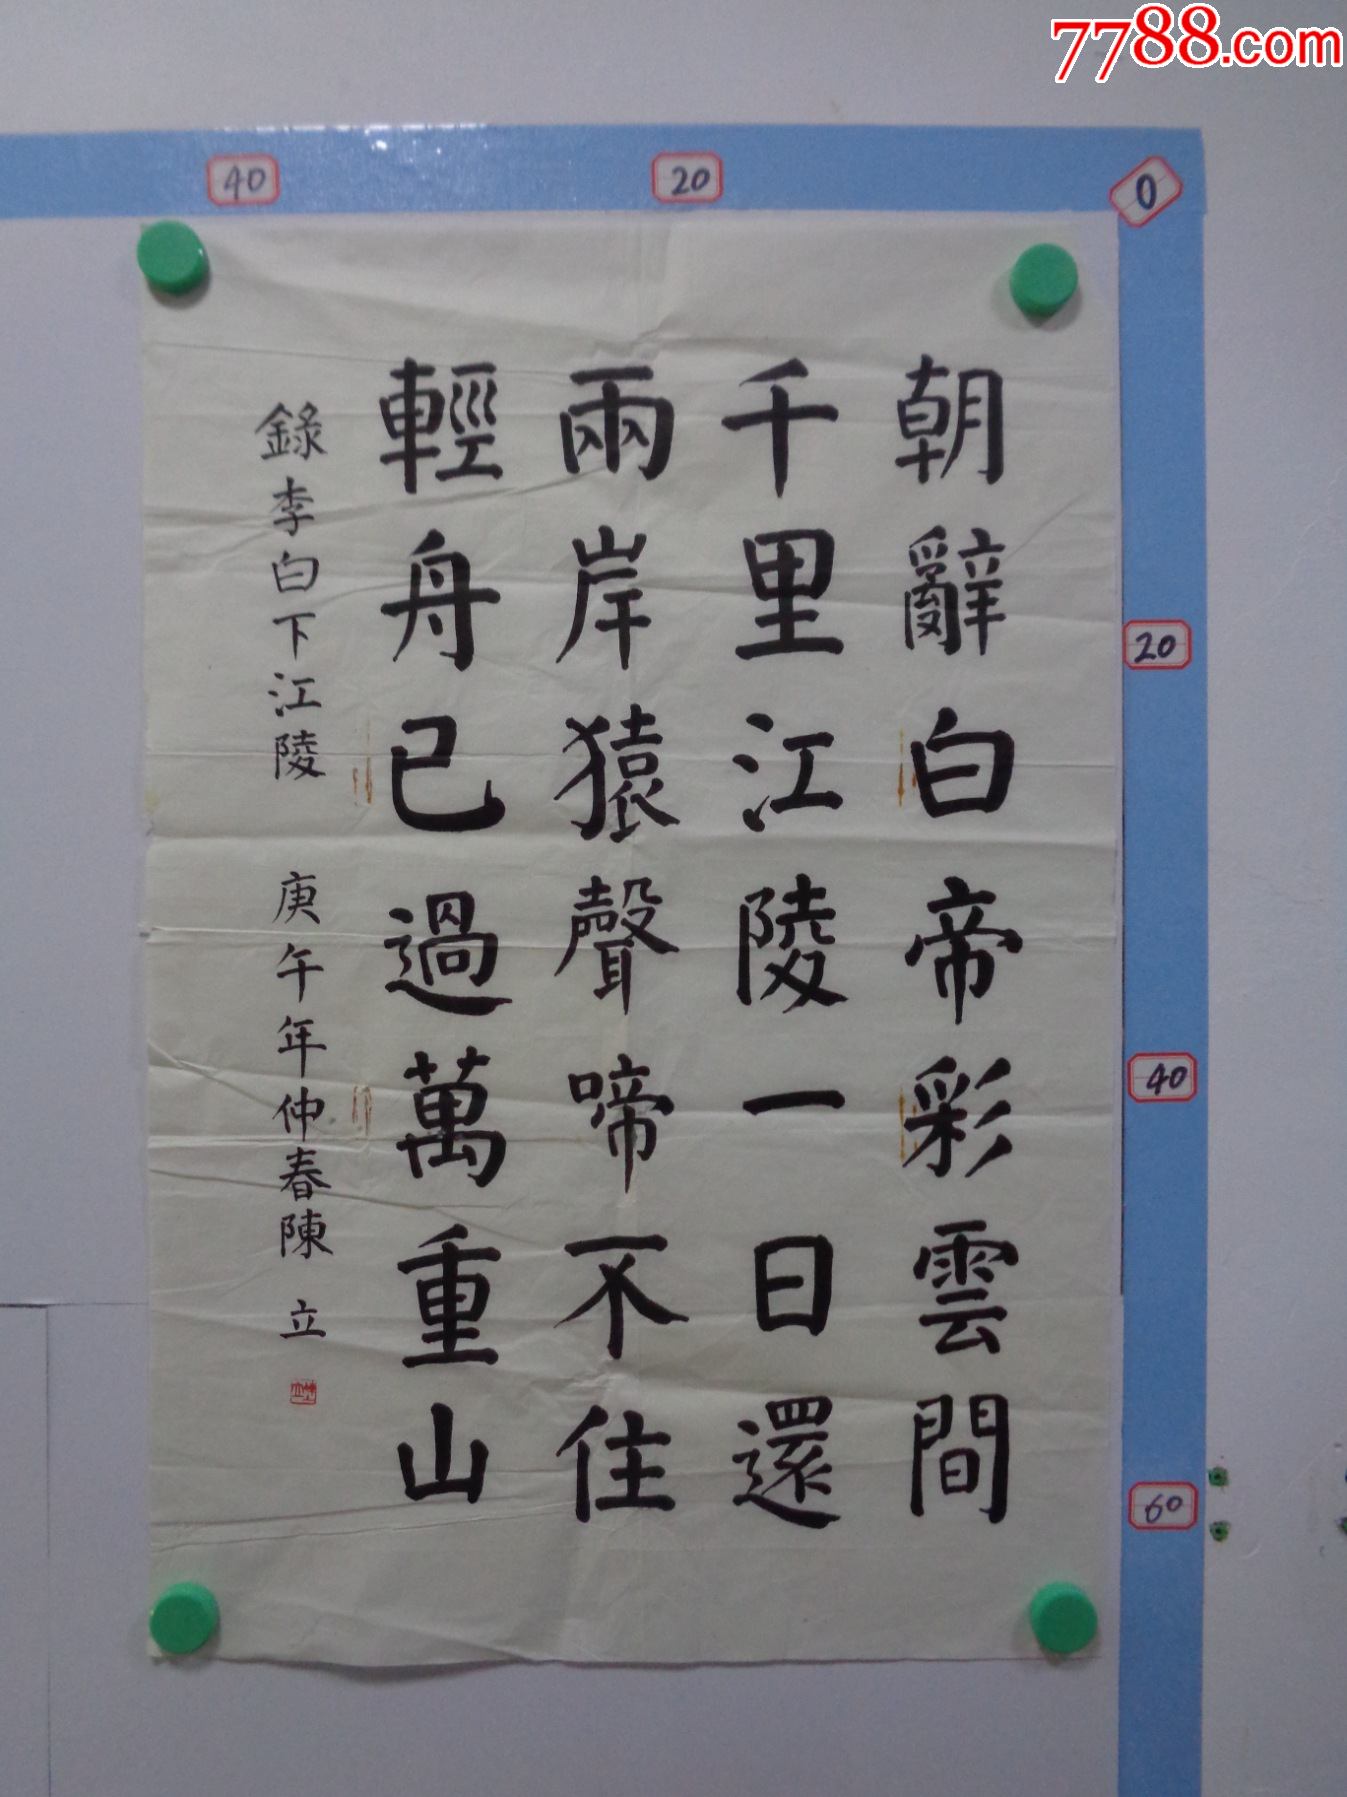 7788.com
40
20
0
20
40
60
朝辭白帝彩雲間
千里江陵一日還
兩岸猿聲啼不住
輕舟已過萬重山
錄李白下江陵 庚午年仲春陳 立